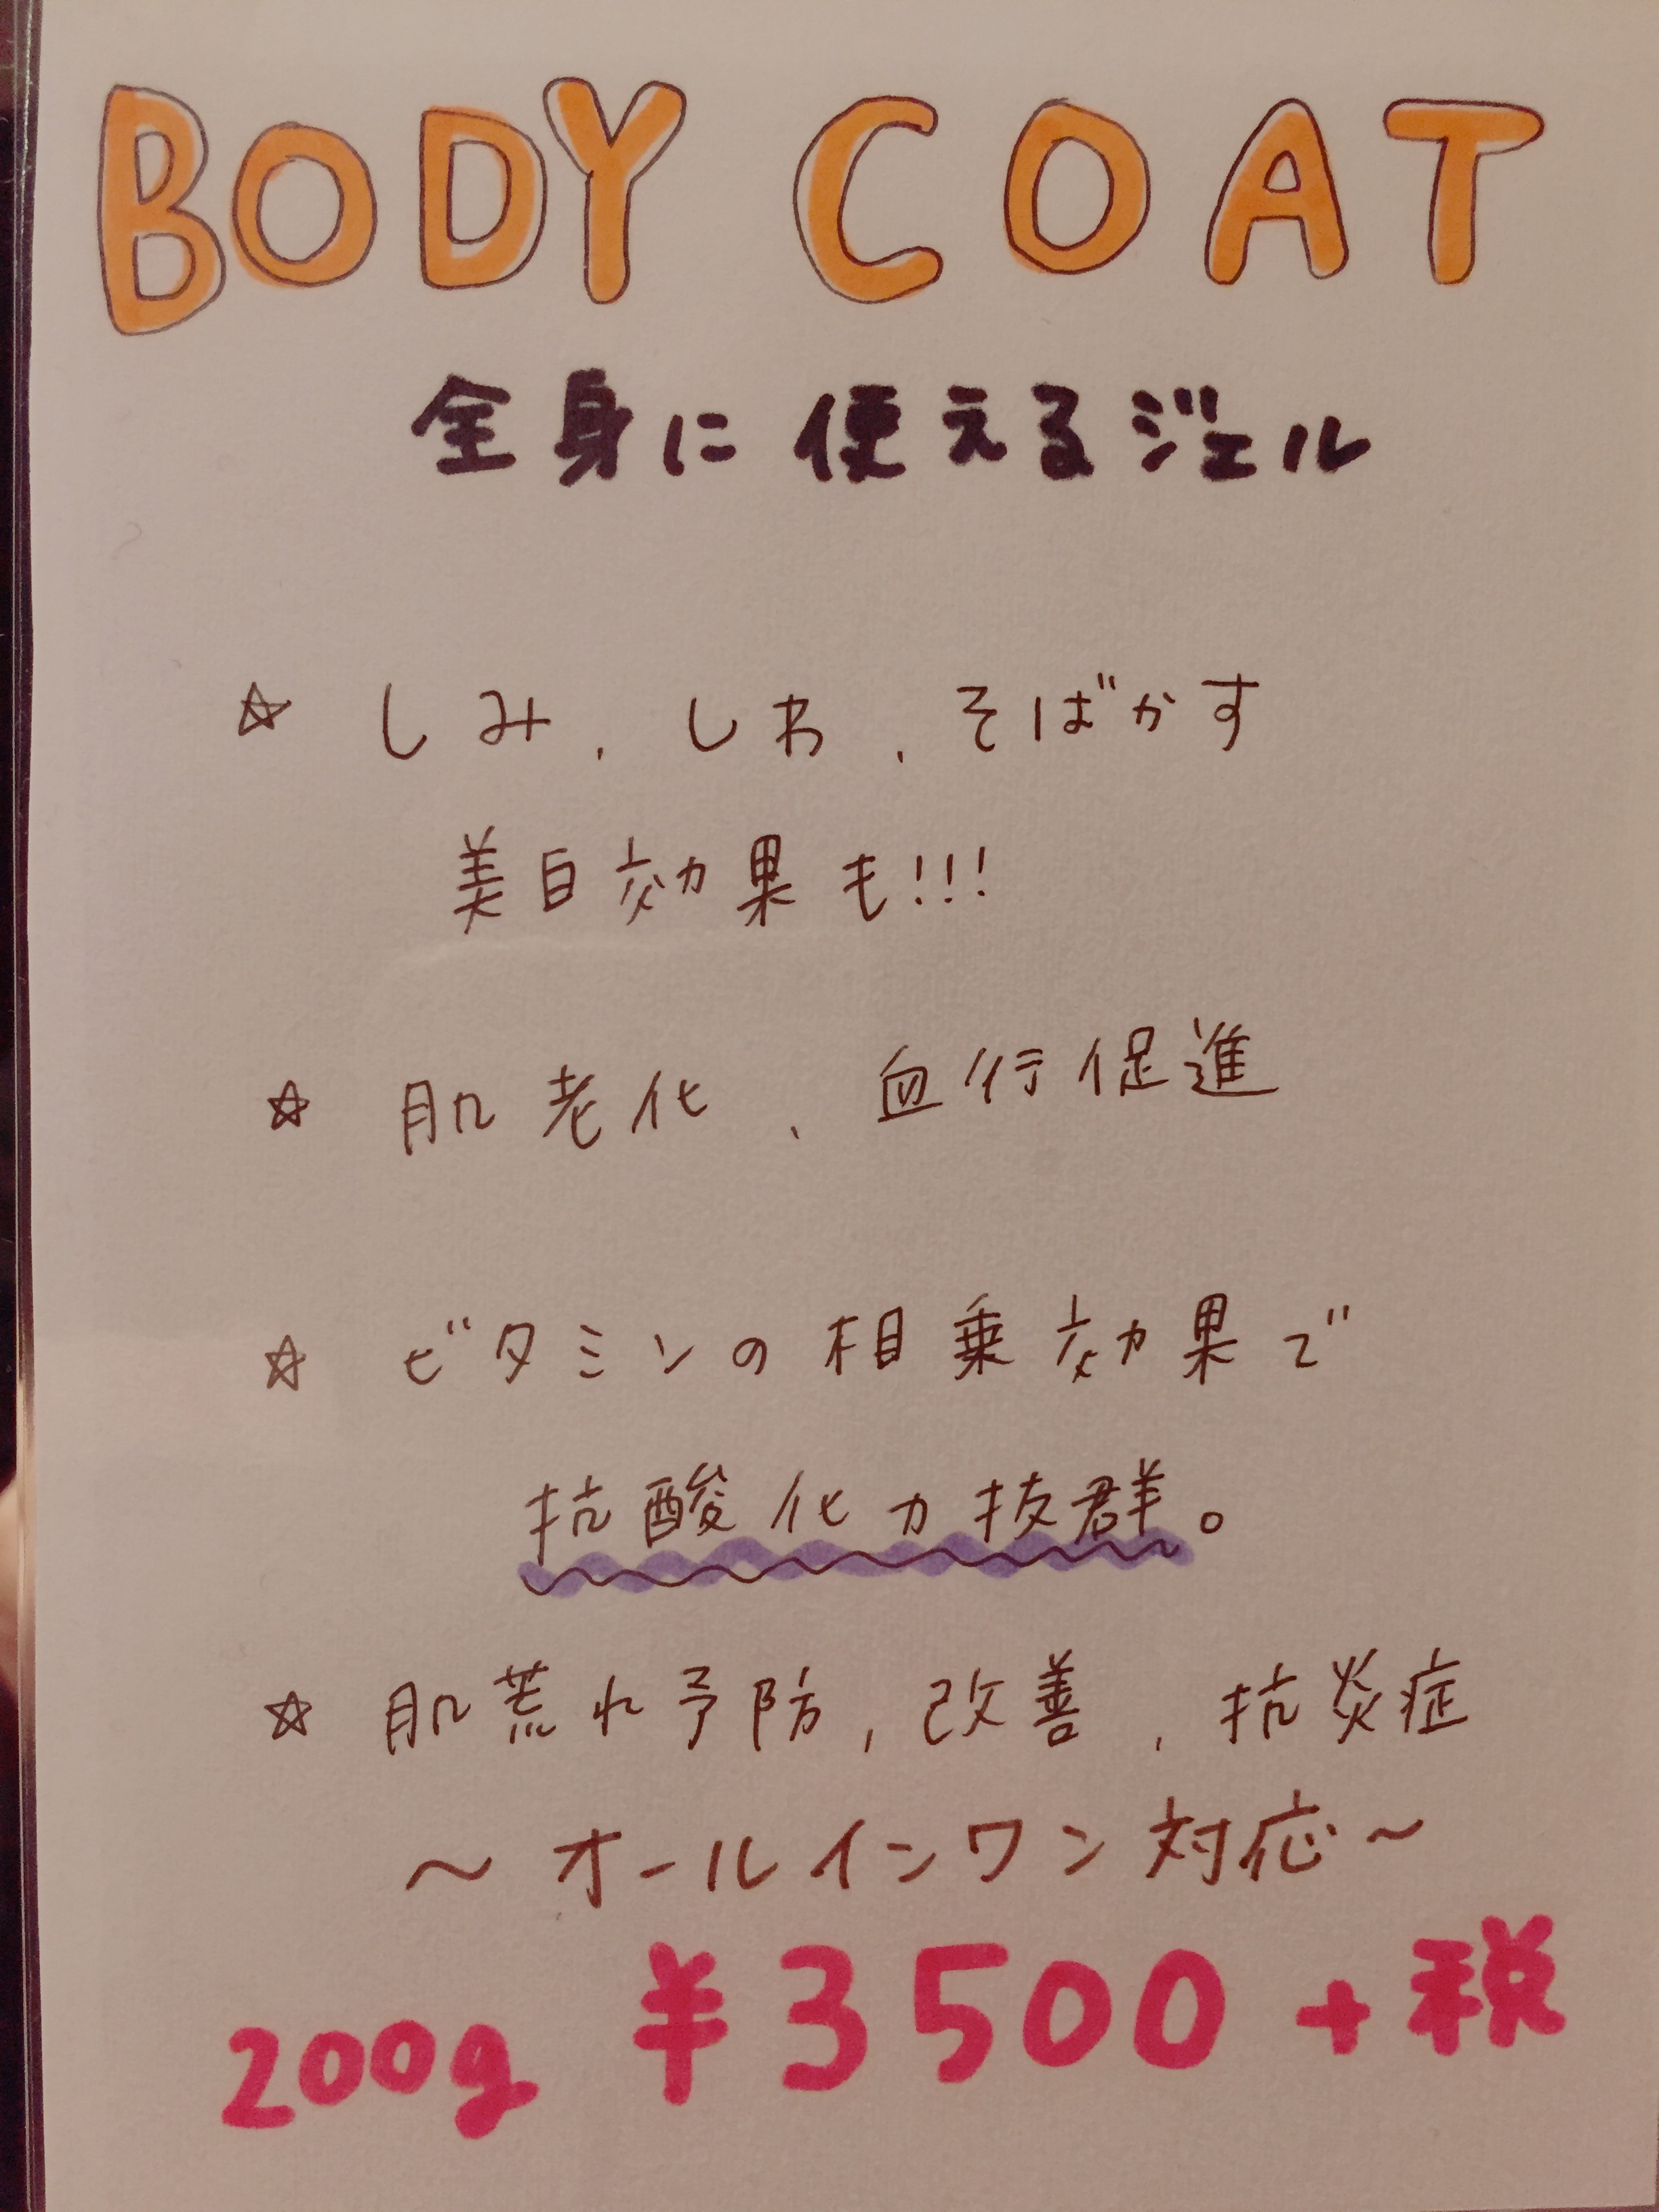 BODY COAT
全身に使えるジェル
☆ しみ、しわ、そばかす
美白効果も!!!
☆ 肌老化、血行促進
☆ ビタミンの相乗効果で
抗酸化力抜群。
☆ 肌荒れ予防、改善、抗炎症
～オールインワン対応～
200g ¥3500+税